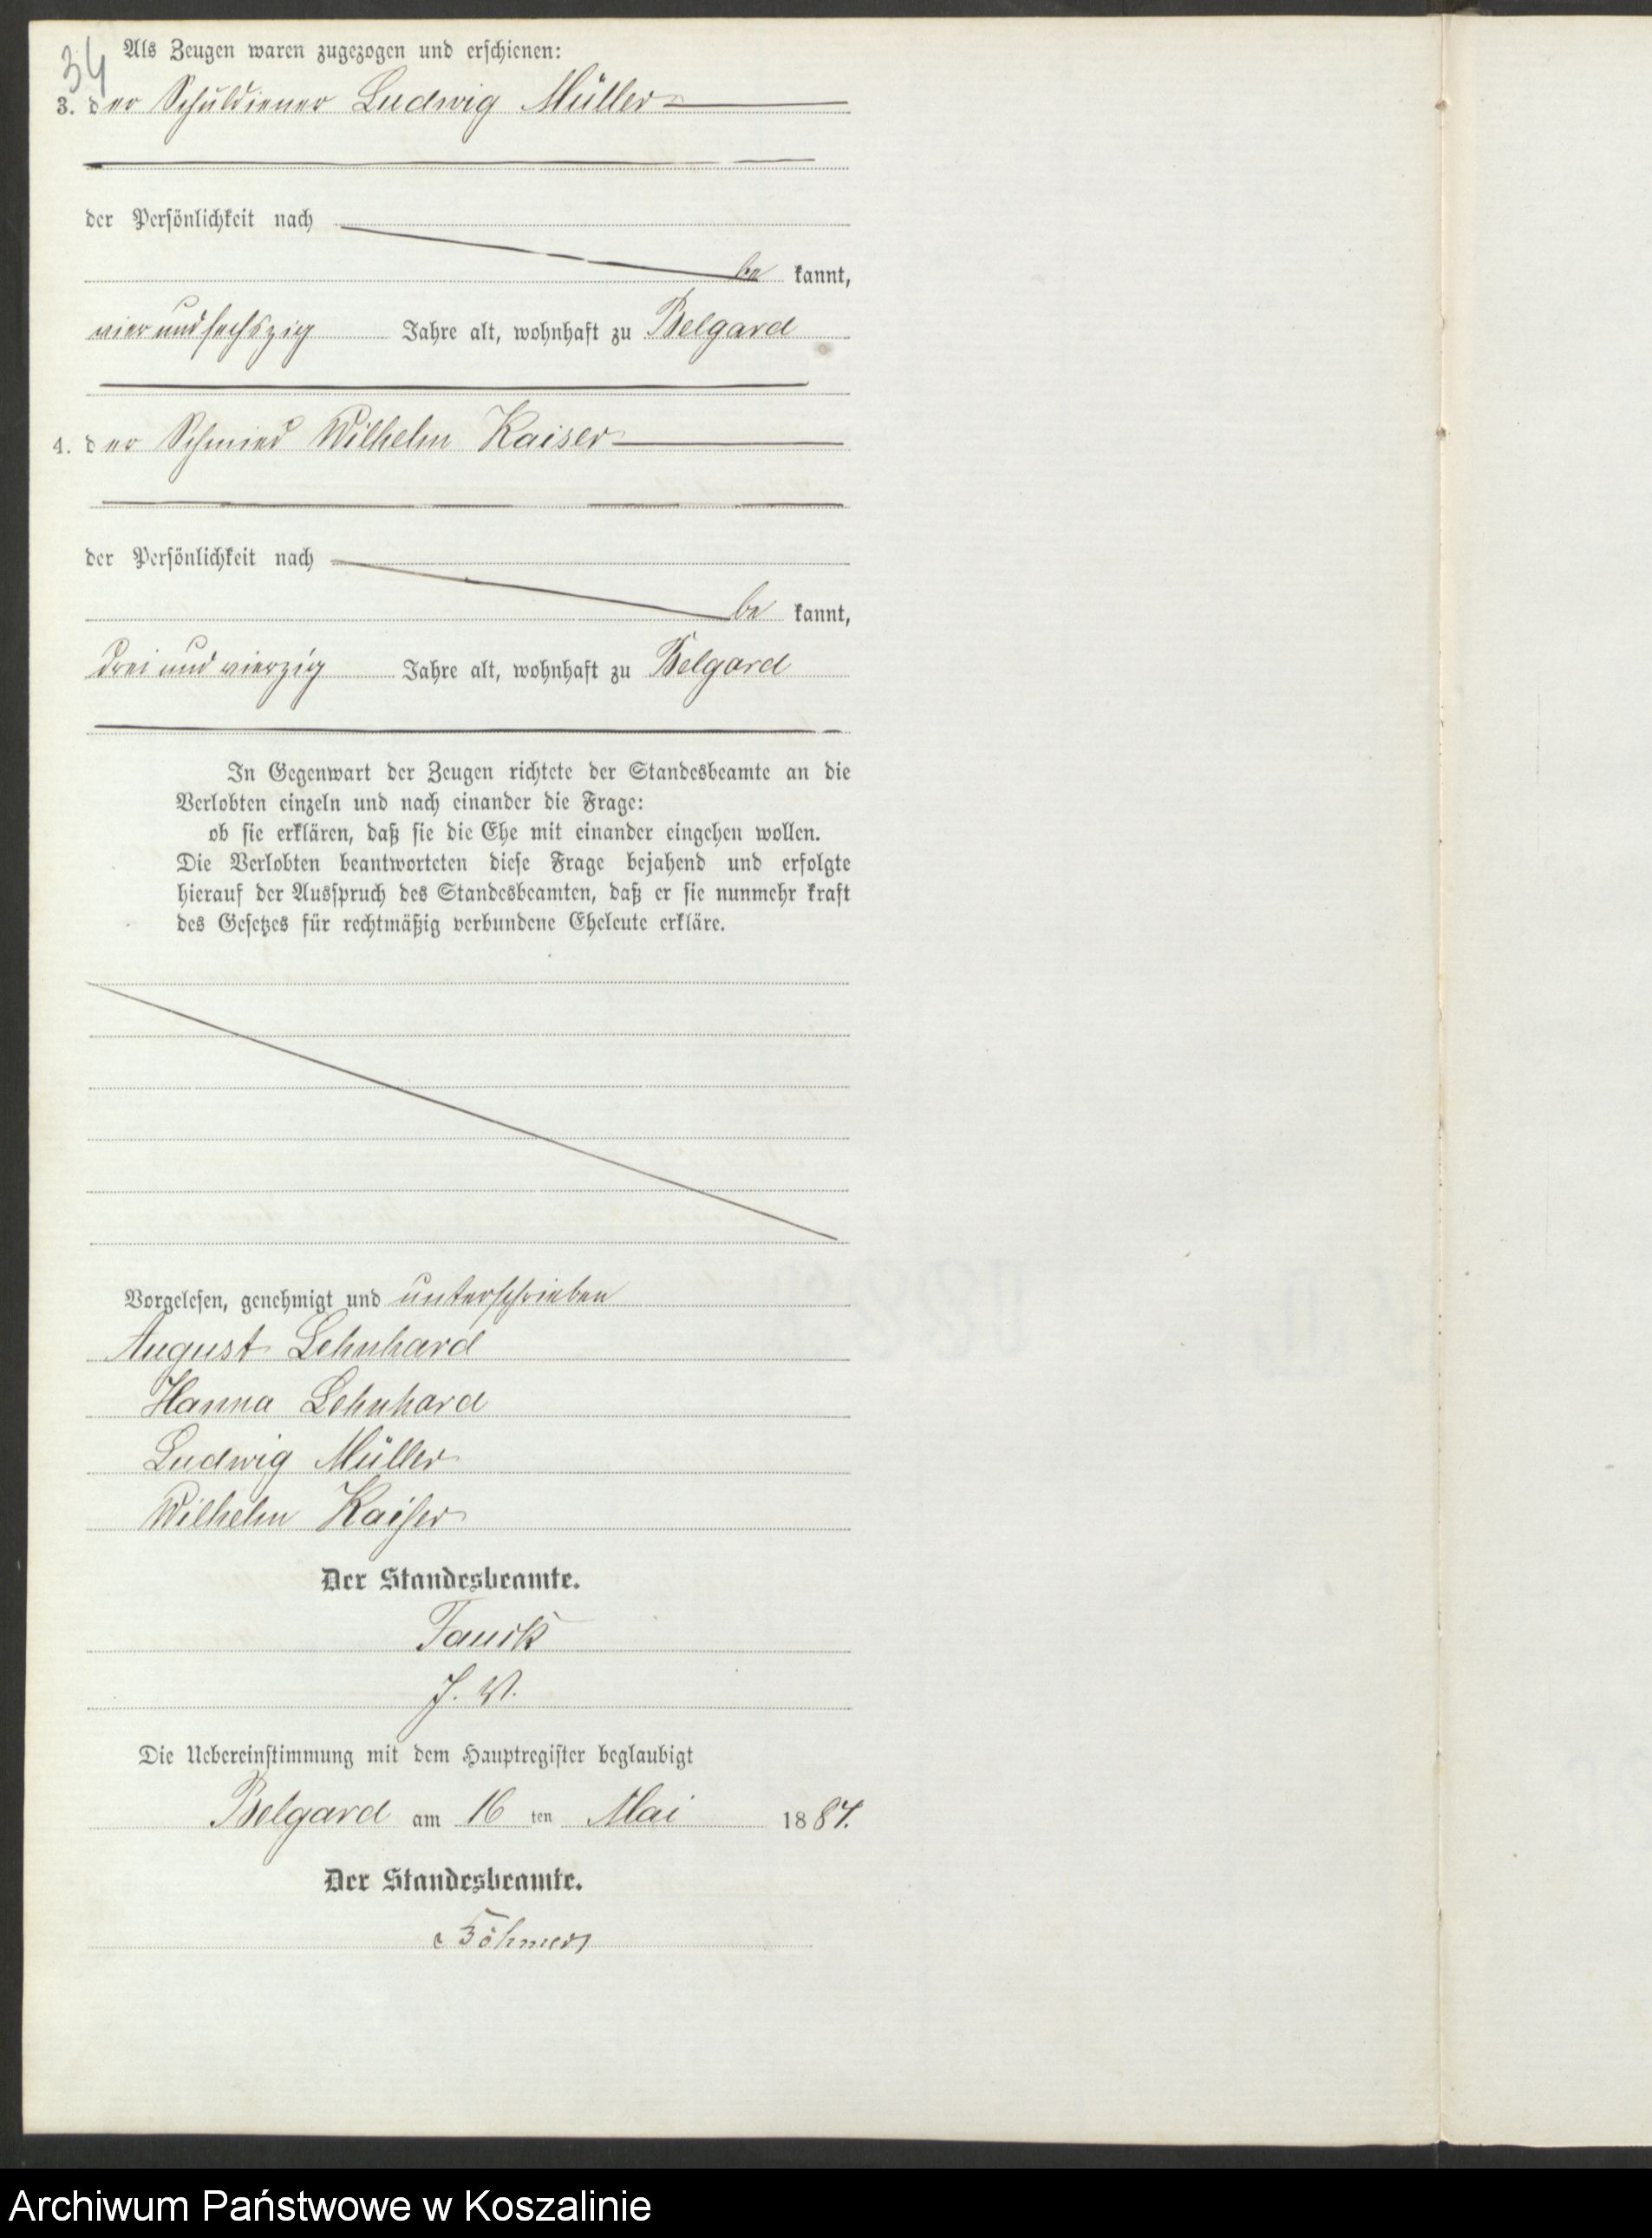 34
Als Zeugen waren zugezogen und erschienen:
3. der Schuldiener Ludwig Müller
der Persönlichkeit nach
be kannt,
vier und sechszig Jahre alt, wohnhaft zu Belgard
4. der Schmied Wilhelm Kaiser
der Persönlichkeit nach
be kannt,
drei und vierzig Jahre alt, wohnhaft zu Belgard
In Gegenwart der Zeugen richtete der Standesbeamte an die
Verlobten einzeln und nach einander die Frage:
ob sie erklären, daß sie die Ehe mit einander eingehen wollen.
Die Verlobten beantworteten diese Frage bejahend und erfolgte
hierauf der Ausspruch des Standesbeamten, daß er sie nunmehr kraft
des Gesetzes für rechtmäßig verbundene Eheleute erkläre.
Vorgelesen, genehmigt und unterschrieben
August Lehnhard
Hanna Lehnhard
Ludwig Müller
Wilhelm Kaiser
Der Standesbeamte.
Tauck
J. V.
Die Uebereinstimmung mit dem Hauptregister beglaubigt
Belgard am 16 ten Mai 1887.
Der Standesbeamte.
Archiwum Państwowe w Koszalinie